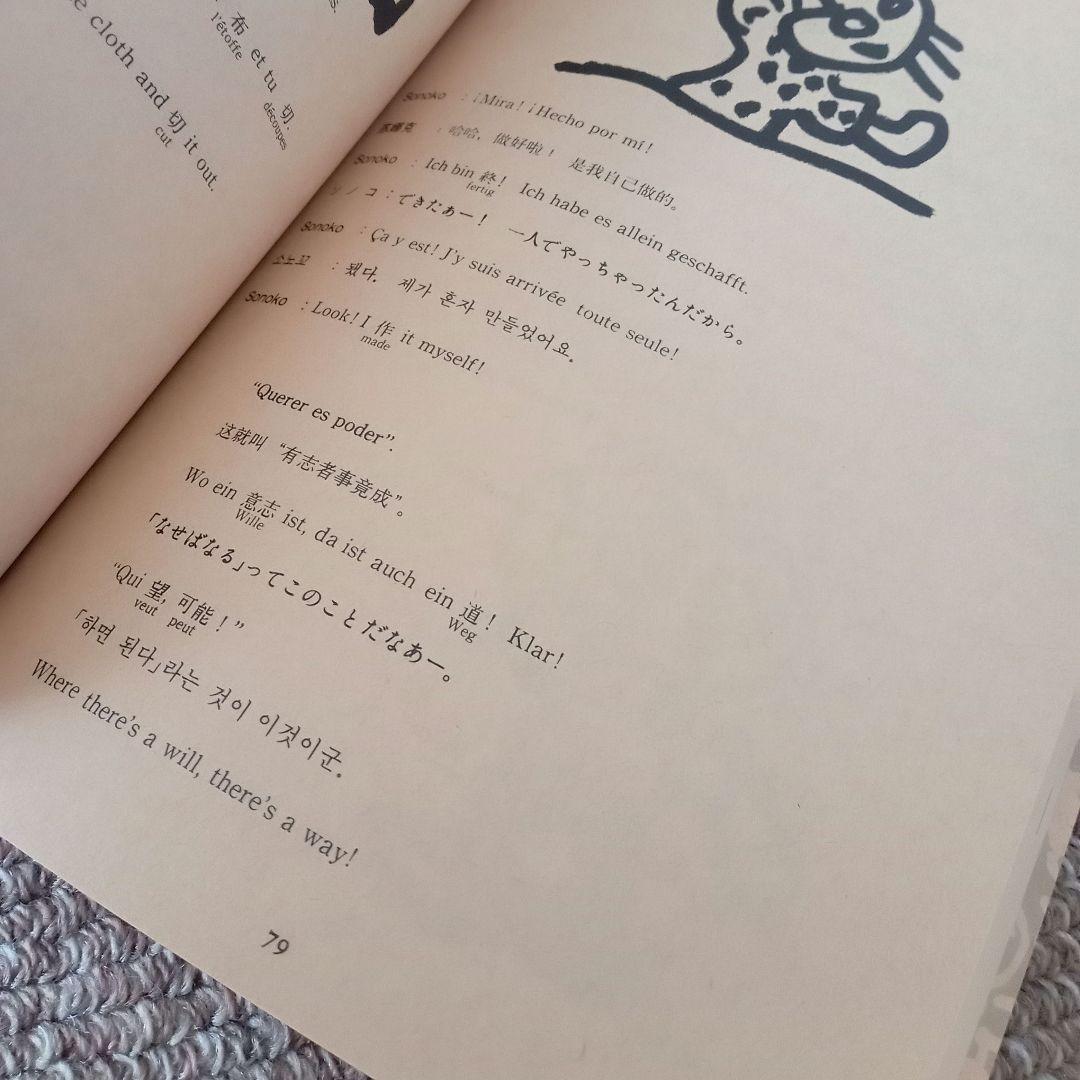 s.
布 et tu 切.
l'étoffe découpes
e cloth and 切 it out.
cut
Sonoko : ¡Mira! ¡Hecho por mí!
: 哈哈，做好啦！ 是我自己做的。
Sonoko : Ich bin 終! Ich habe es allein geschafft.
fertig
ソノコ : できたぁー！ 一人でやっちゃったんだから。
Sonoko : Ça y est! J'y suis arrivée toute seule!
소노꼬 : 됐다. 제가 혼자 만들었어요.
Sonoko : Look! I 作 it myself!
made
“Querer es poder”.
这就叫 “有志者事竟成”。
Wo ein 意志 ist, da ist auch ein 道! Klar!
Wille Weg
「なせばなる」ってこのことだなあー。
“Qui 望, 可能!”
veut peut
「하면 된다」라는 것이 이것이군.
Where there's a will, there's a way!
79